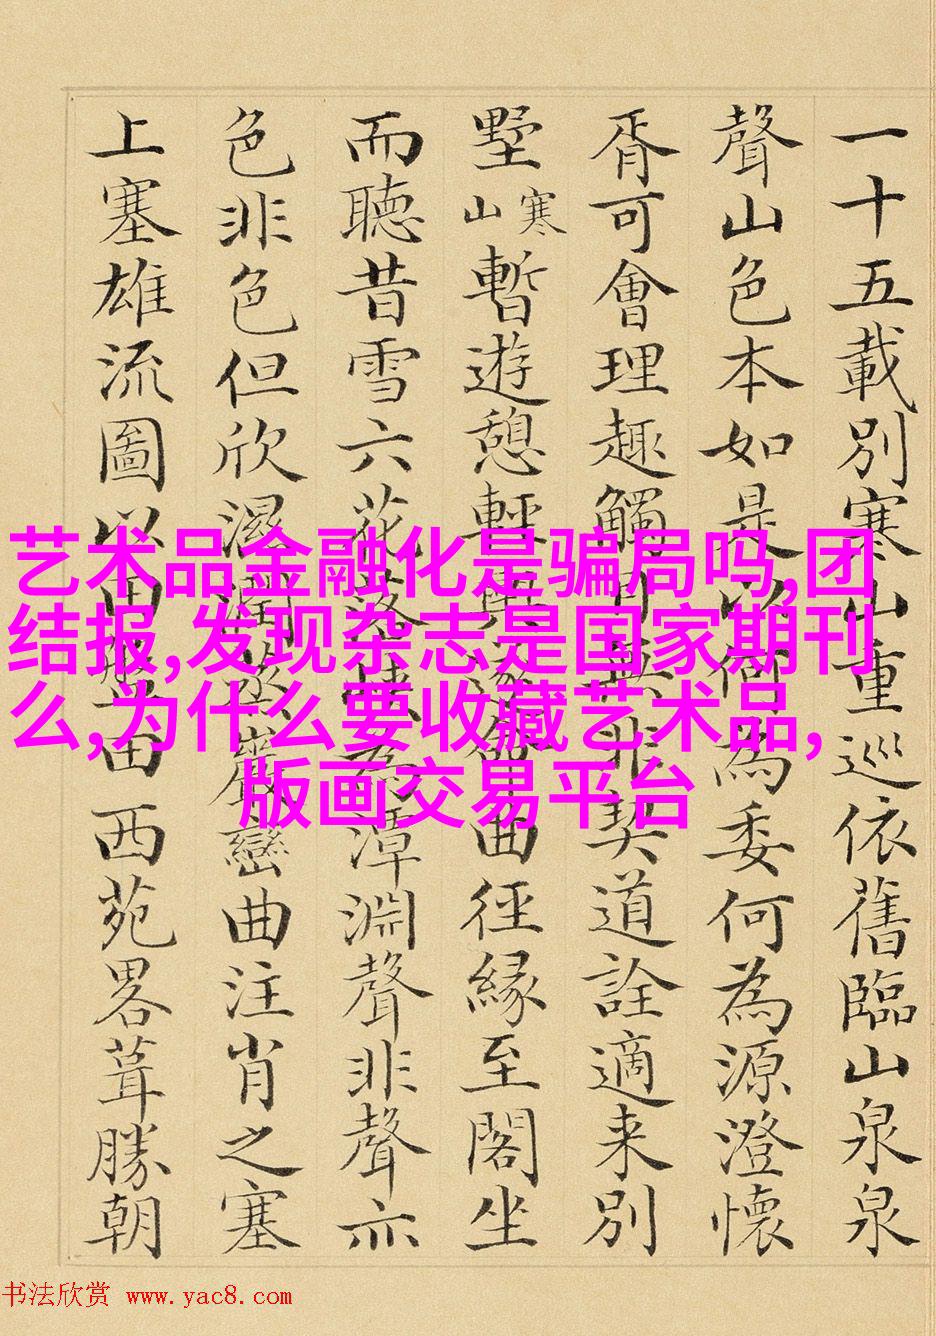 一十五載別寒山重巡依舊臨山泉泉
聲山色本如是以何為委何為源澄懷
胥可會理趣觸目無非契道詮適来別
墅寒山暫遊憩輕輿曲徑緣至閣坐
而聽昔雪六花落為潭淵聲非聲亦
色非色但欣濕潤巖巒曲注肖之塞
上塞雄流圖以田田西苑畧葺勝朝
艺术品金融化是骗局吗,团
结报,发现杂志是国家期刊
么,为什么要收藏艺术品,
版画交易平台
书法欣赏 www.yac8.com